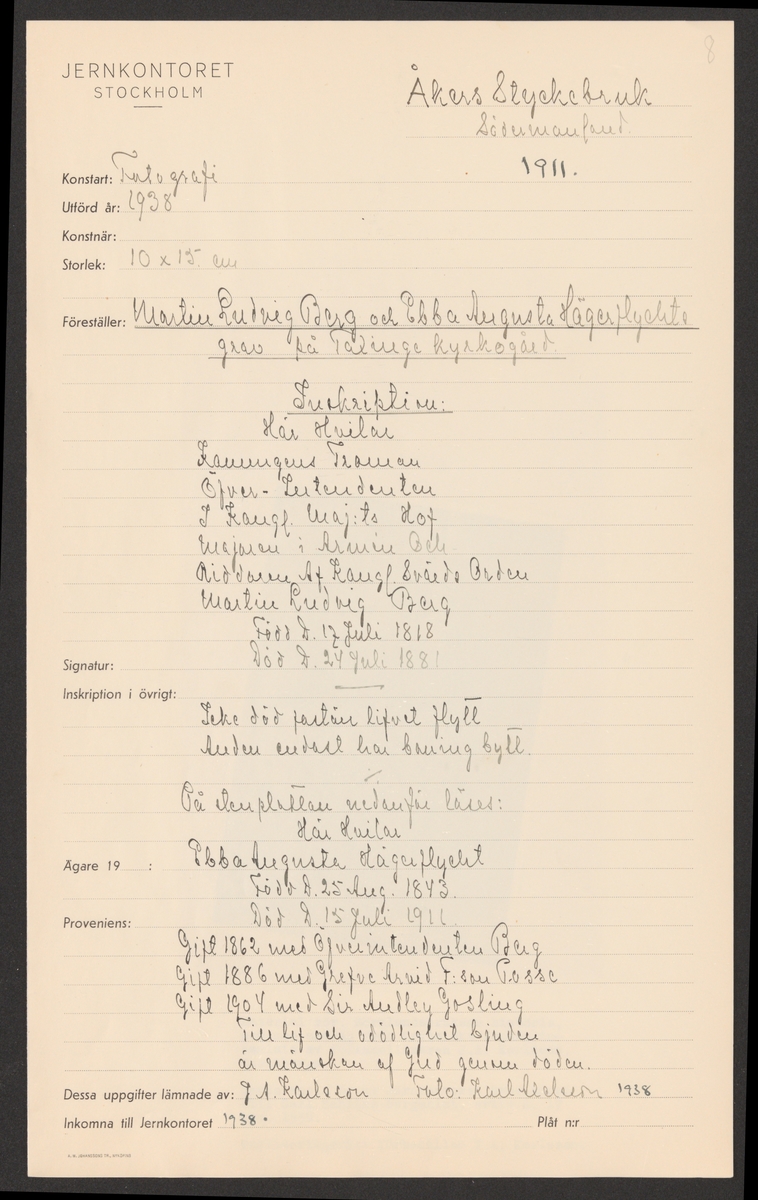 8
JERNKONTORET
STOCKHOLM
Åkers Styckebruk
Södermanland.
1911.
Konstart: Fotografi
Utförd år: 1938
Konstnär:
Storlek: 10 x 15 cm
Föreställer: Martin Ludvig Berg och Ebba Augusta Hägerflychts
grav på Taxinge kyrkogård.
Inskription:
Här Hvilar
Konungens Troman
Öfver-Intendenten
I Kongl. Maj:ts Hof
Majoren i Armén Och
Riddaren Af Kongl. Svärds Orden
Martin Ludvig Berg
Född D. 17 Juli 1818
Död D. 24 Juli 1881
Signatur:
Inskription i övrigt:
Icke död fastän lifvet flytt
Anden endast har boning bytt.
./.
På stenplattan nedanför läses:
Här Hvilar
Ägare 19 : Ebba Augusta Hägerflycht
Född D. 25 Aug. 1843.
Död D. 15 Juli 1911.
Proveniens:
Gift 1862 med Öfverintendenten Berg
Gift 1886 med Grefve Arvid F:son Posse
Gift 1904 med Sir Audley Gosling
Till lif och odödlighet bjuden
är mänskan af Gud genom döden.
Dessa uppgifter lämnade av: J A. Karlsson Foto: Karl Axelsson 1938
Inkomna till Jernkontoret 1938. Plåt n:r